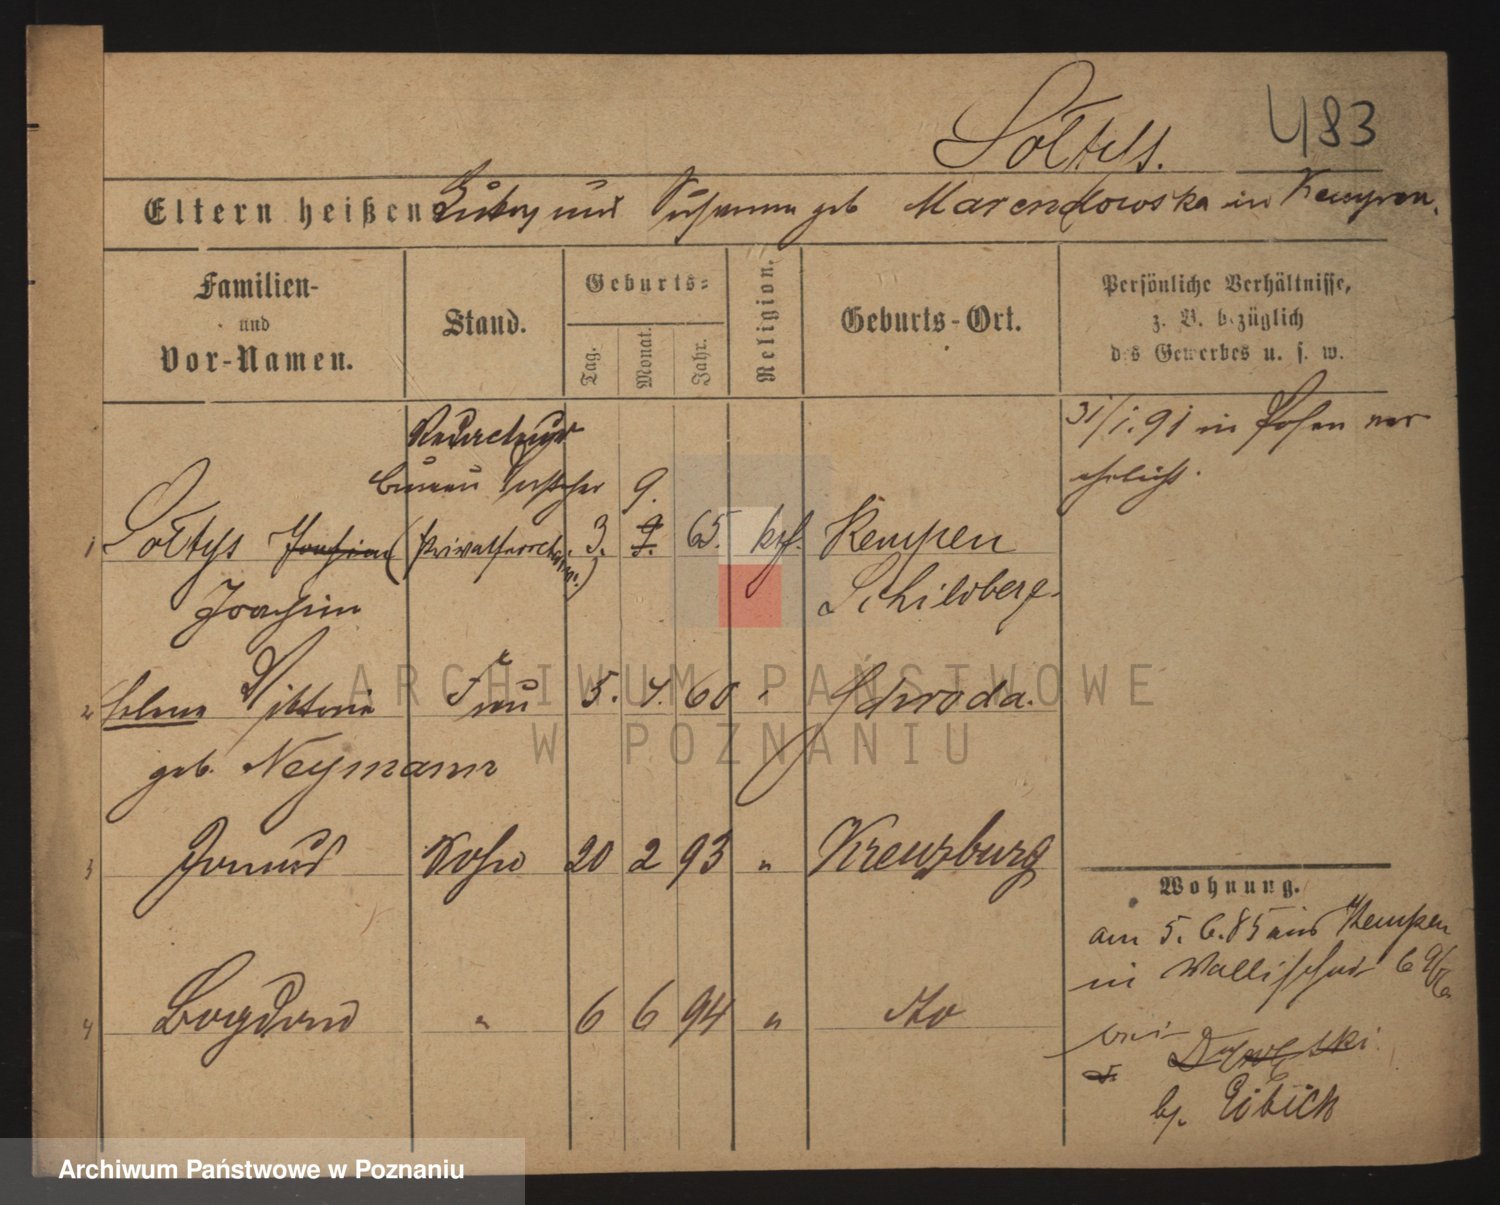 Sołtys. 483
Eltern heißen und Susanna geb Marendowska in Kempen.
Familien-
und
Vor-Namen.
Stand.
Geburts-
Tag.
Monat.
Jahr.
Religion.
Geburts-Ort.
Persönliche Verhältnisse,
z. B. bezüglich
des Gewerbes u. s. w.
31/1.91 in Posen ver
ehelicht.
Redacteur
Bureau Vorsteher 9.
1 Sołtys Joachim 3. 9. 65. kth. Kempen
Joachim Schildberg.
2 Helene Viktoria Frau 5. 4. 60 " Schroda.
geb. Neymann
3 Sohn 20 2 93 " Kreuzburg
4 Bogdan " 6 6 94 " dto
Wohnung.
am 5. 6. 85 aus Kempen
in Wallischei 69/70
bei
b/. Eibich
ARCHIWUM PAŃSTWOWE
W POZNANIU
Archiwum Państwowe w Poznaniu